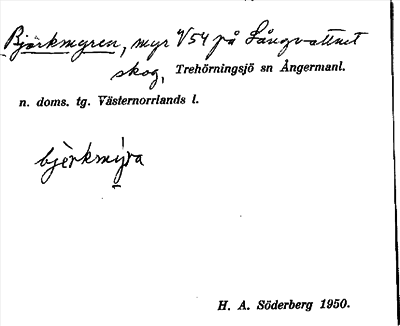 Björkmyren, myr V54 på Långvattnet
skog, Trehörningsjö sn Ångermanl.
n. doms. tg. Västernorrlands l.
bjèrkmýra
H. A. Söderberg 1950.